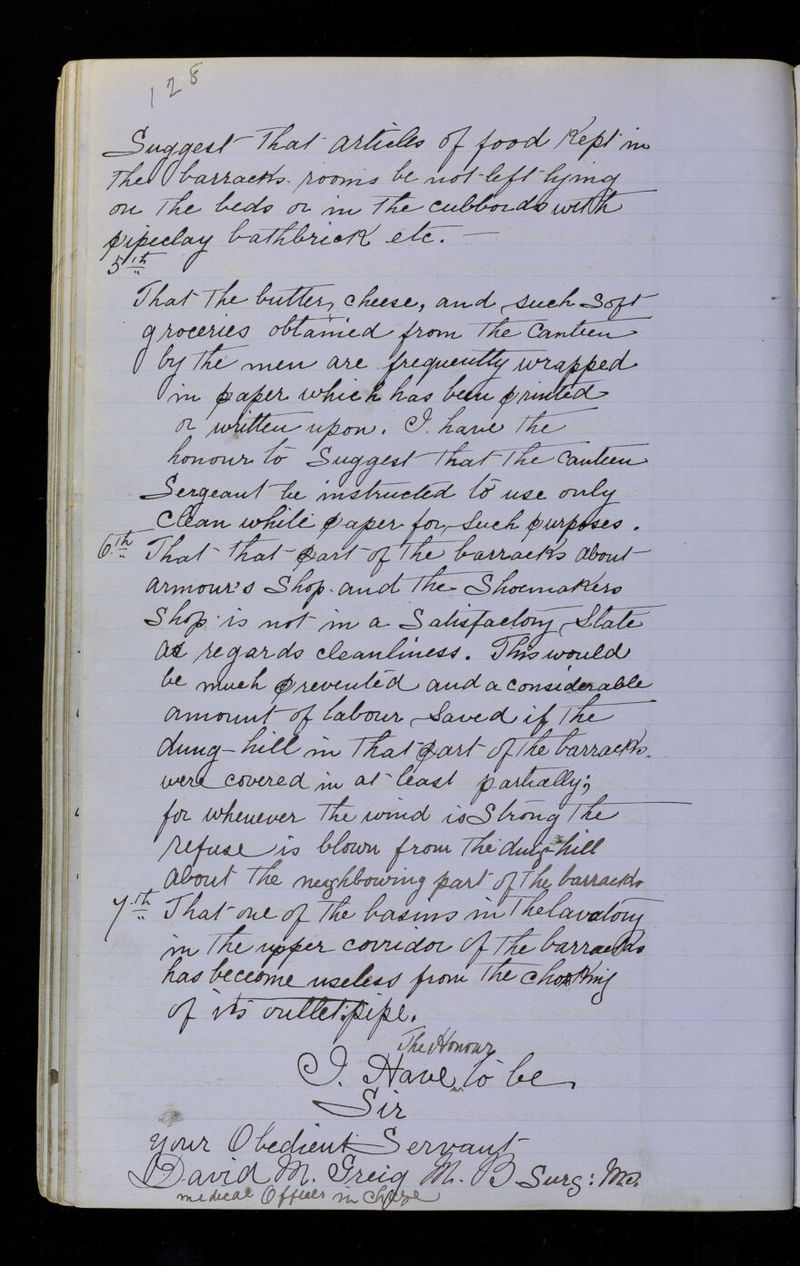 128
Suggest that articles of food Kept in
the barracks rooms be not left lying
on the beds or in the cubbords with
pipeclay bathbrick etc. —
5th
That the butter, cheese, and such soft
groceries obtained from the Canteen
by the men are frequently wrapped
in paper which has been printed
or written upon. I have the
honour to Suggest that the Canteen
Sergeant be instructed to use only
Clean while paper for such purposes.
6th That that part of the barracks about
armour's Shop and the Shoemakers
Shop is not in a Satisfactory State
as regards cleanliness. This would
be much prevented and a considerable
amount of labour saved if the
dung-hill in that part of the barracks
were covered in at least partially;
for whenever the wind is Strong the
refuse is blown from the dung-hill
about the neighbouring part of the barracks
7th That one of the basins in the lavatory
in the upper corridor of the barracks
has become useless from the choking
of its outlet pipe.
The Honour
I. Have ^ to be
Sir
your Obedient Servant
David M. Greig M. B Surg: Ms.
medical Officer in Charge